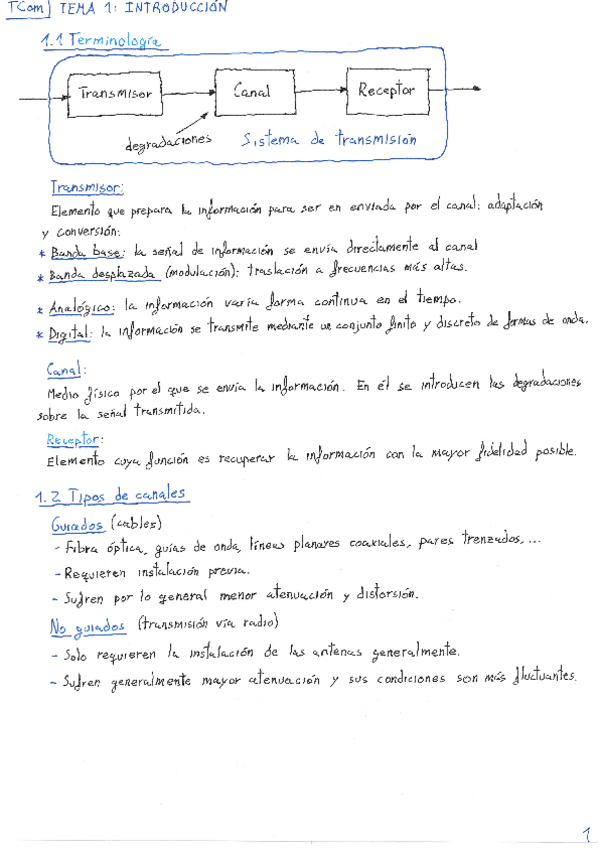 TCom TEMA 1: INTRODUCCIÓN
1.1 Terminología
Transmisor
Canal
Receptor
degradaciones
Sistema de transmisión
Transmisor:
Elemento que prepara la información para ser en enviada por el canal: adaptación
y conversión:
* Banda base: la señal de información se envía directamente al canal
* Banda desplazada (modulación): traslación a frecuencias más altas.
* Analógico: la información varía forma continua en el tiempo.
* Digital: la información se transmite mediante un conjunto finito y discreto de formas de onda.
Canal:
Medio físico por el que se envía la información. En él se introducen las degradaciones
sobre la señal transmitida.
Receptor:
Elemento cuya función es recuperar la información con la mayor fidelidad posible.
1.2 Tipos de canales
Guiados (cables)
- Fibra óptica, guías de onda, líneas planares coaxiales, pares trenzados, ...
- Requieren instalación previa.
- Sufren por lo general menor atenuación y distorsión.
No guiados (transmisión vía radio)
- Solo requieren la instalación de las antenas generalmente.
- Sufren generalmente mayor atenuación y sus condiciones son más fluctuantes.
1